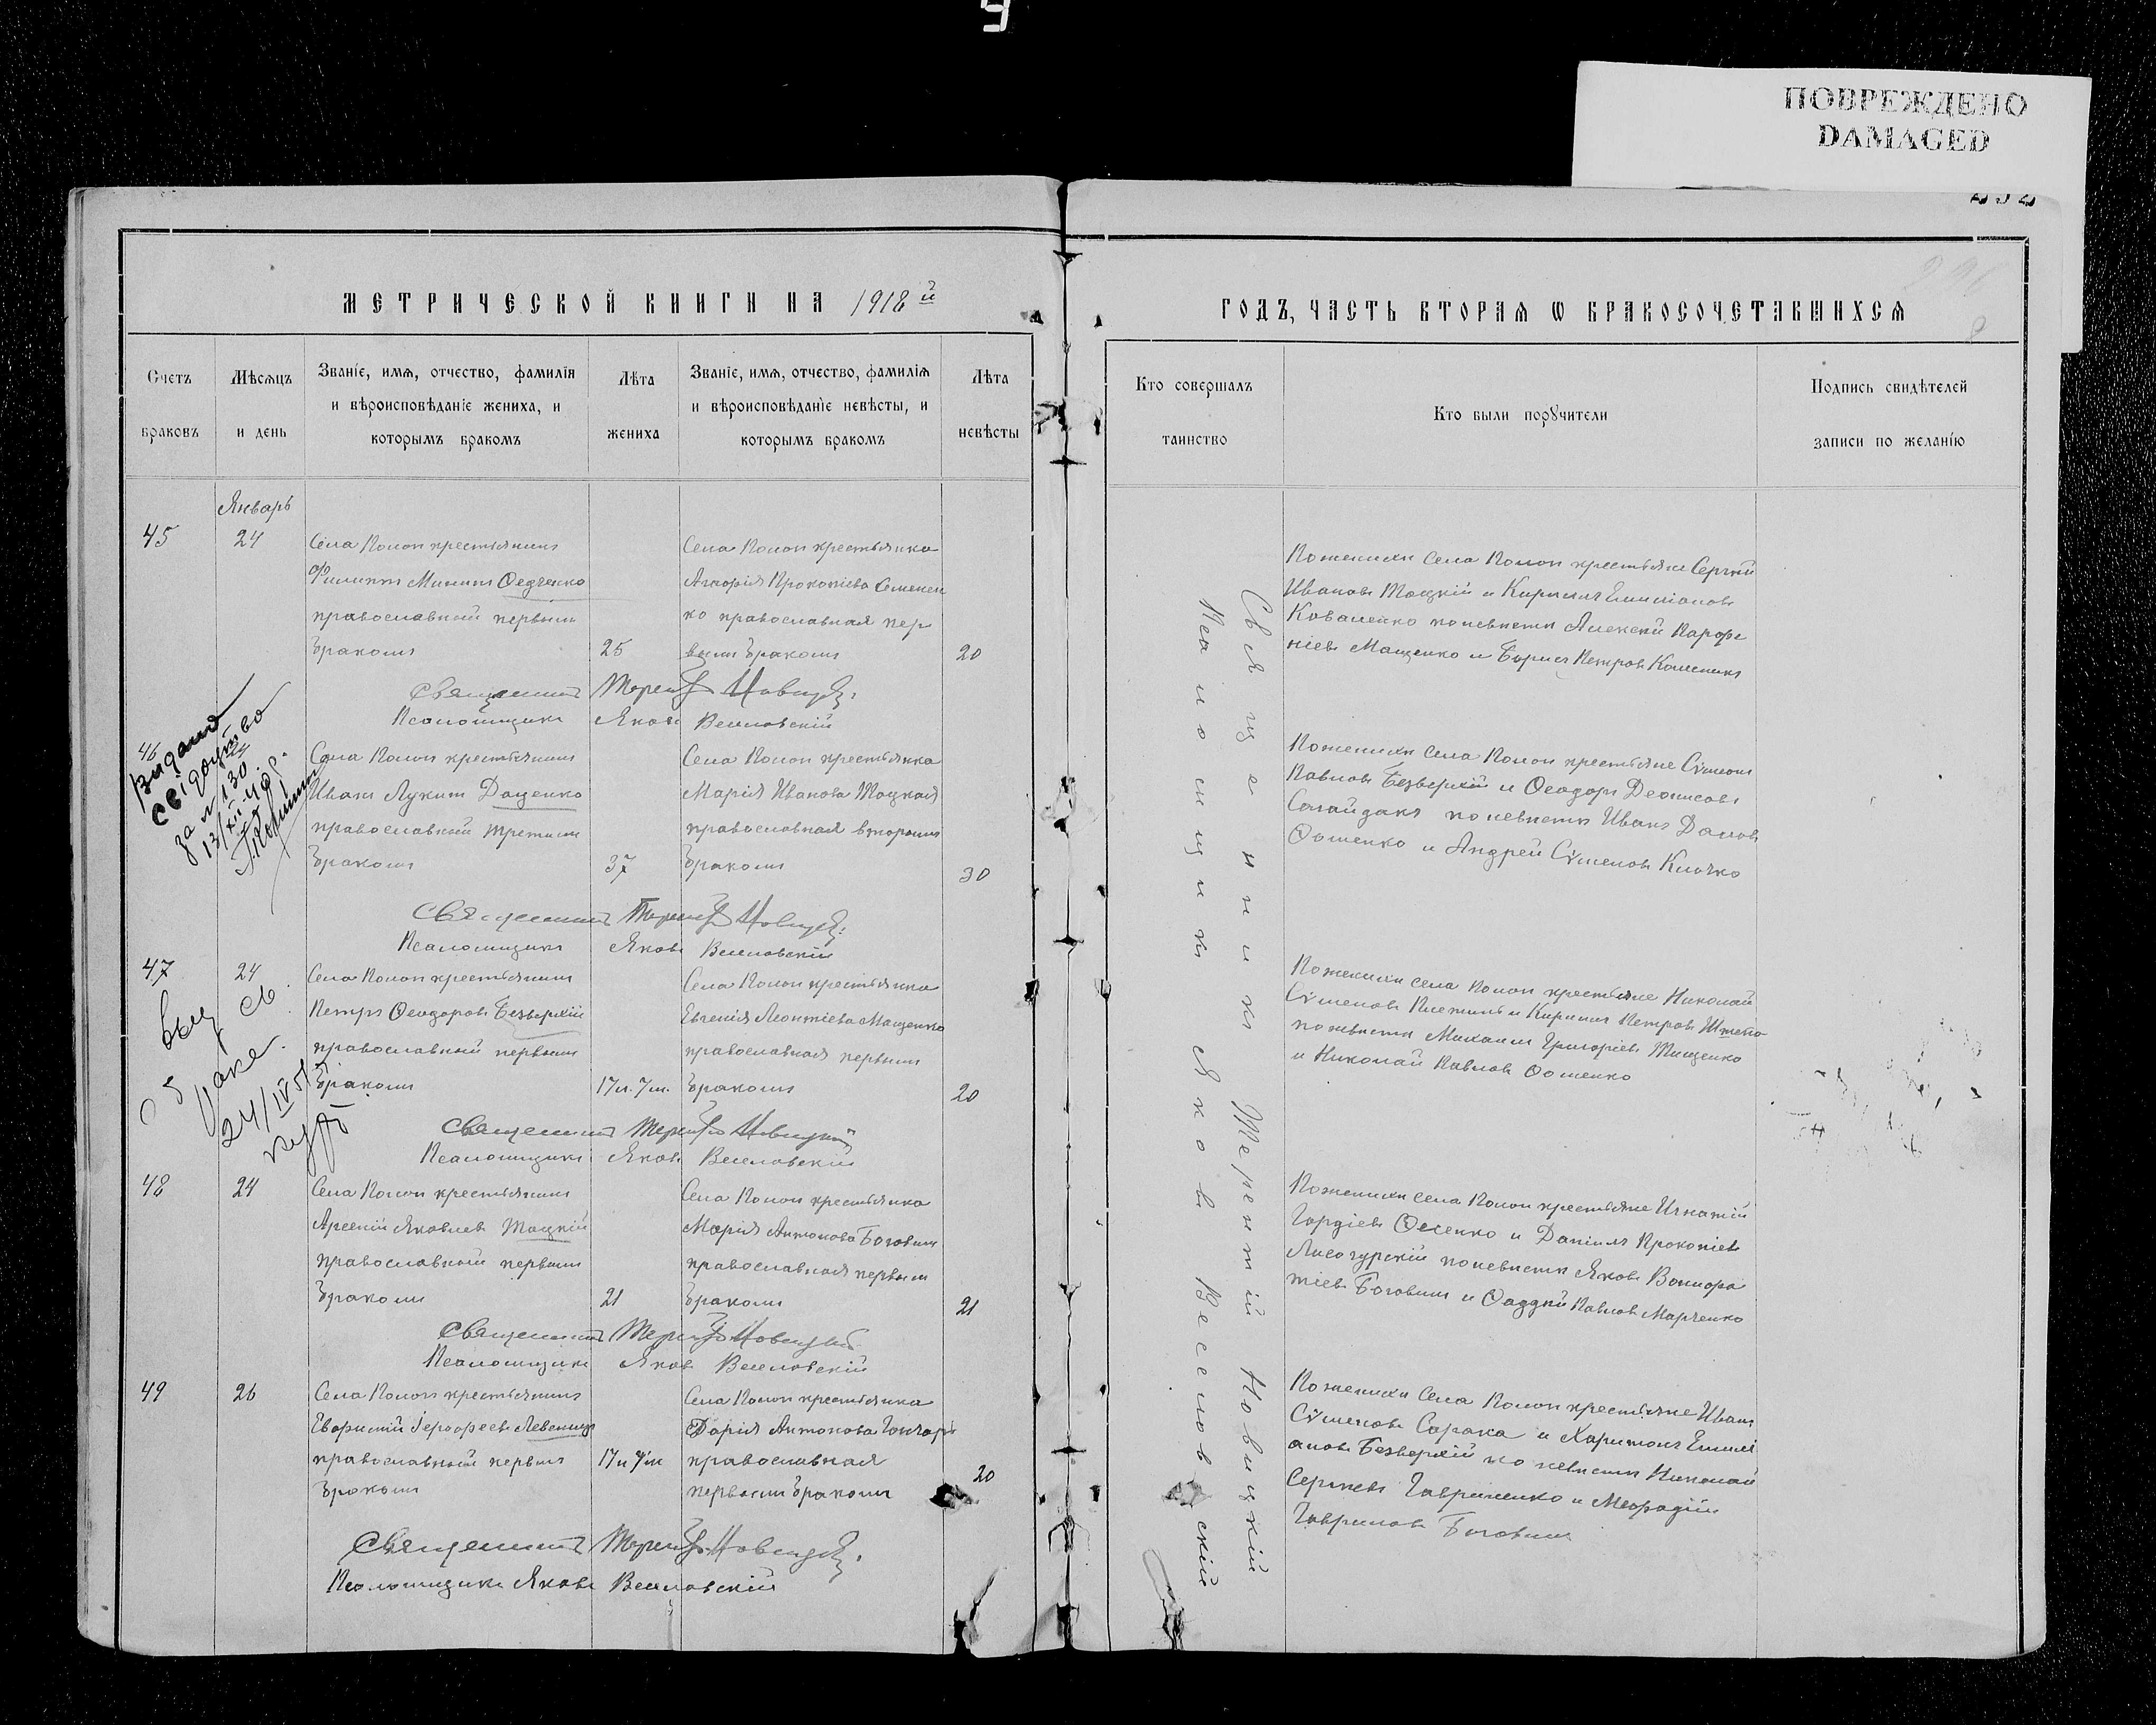 ПОВРЕЖДЕНО
DAMAGED
МЕТРИЧЕСКОЙ КНИГИ НА 1918 й
ГОДЪ, ЧАСТЬ ВТОРАЯ Ѡ БРАКОСОЧЕТАВШИХСЯ
Счетъ браковъ
Мѣсяцъ и день
Званіе, имя, отчество, фамилія
и вѣроисповѣданіе жениха, и
которымъ бракомъ
Лѣта жениха
Званіе, имя, отчество, фамилія
и вѣроисповѣданіе невѣсты, и
которымъ бракомъ
Лѣта невѣсты
Кто совершалъ таинство
Кто были порꙋчители
Подпись свидѣтелей
записи по желанію
Январь
45
24
Села Полон крестьянинъ
Филиппъ Мининъ Ѳедченко
православный первымъ
бракомъ
25
Села Полон крестьянка
Агафія Прокопіева Семенен
ко православная пер
вымъ бракомъ
20
Священникъ Терентій Новицкій
Псаломщикъ Яковъ Веселовскій
По женихѣ села Полон крестьяне Сергѣй
Ивановъ Тоцкій и Кириллъ Емиліановъ
Коваленко по невѣстѣ Алексѣй Парфе
ніевъ Мащенко и Борисъ Петровъ
46
24
видано
свідоцтво
за № 130
Села Полон крестьянинъ
Иванъ Лукинъ Даценко
православный третимъ
бракомъ
37
Села Полон крестьянка
Марія Иванова Тоцкая
православная вторымъ
бракомъ
30
Священникъ Терентій Новицкій
Псаломщикъ Яковъ Веселовскій
По женихѣ села Полон крестьяне Сѵмеонъ
Павловъ Безверхій и Ѳеодоръ Деонисовъ
Сагайдакъ по невѣстѣ Иванъ
Ѳоменко и Андрей Сѵменовъ Клочко
47
24
Села Полон крестьянинъ
Петръ Ѳеодоровъ Безверхій
православный первымъ
бракомъ
17 л. 7 м.
Села Полон крестьянка
Евгенія Леонтіева Мащенко
православная первымъ
бракомъ
20
24/IV 51
Священникъ Терентій Новицкій
Псаломщикъ Яковъ Веселовскій
По женихѣ села Полон крестьяне Николай
Сѵменовъ и Кириллъ Петровъ
по невѣстѣ Михаилъ Григоріевъ Тищенко
и Николай Павловъ Ѳоменко
48
24
Села Полон крестьянинъ
Арсеній Яковлевъ Тоцкій
православный первымъ
бракомъ
21
Села Полон крестьянка
Марія Антонова Боговикъ
православная первымъ
бракомъ
21
Священникъ Терентій Новицкій
Псаломщикъ Яковъ Веселовскій
По женихѣ села Полон крестьяне Игнатій
Гордіевъ Ѳесенко и Даніилъ Прокопіевъ
Лисогурскій по невѣстѣ Яковъ Вонифа
тіевъ Боговикъ и Ѳаддей Павловъ Марченко
49
26
Села Полон крестьянинъ
Іерофеевъ
православный первымъ
бракомъ
17 л 7 м
Села Полон крестьянка
Дарія Антонова Гончаръ
православная
первымъ бракомъ
20
Священникъ Терентій Новицкій
Псаломщикъ Яковъ Веселовскій
По женихѣ села Полон крестьяне Иванъ
Сѵменовъ Сорока и Харитонъ Емилі
ановъ Безверхій по невѣстѣ Николай
Сергіевъ Гавриленко и Меѳодій
Гавриловъ Боговикъ
Священникъ Терентій Новицкій
Псаломщикъ Яковъ Веселовскій